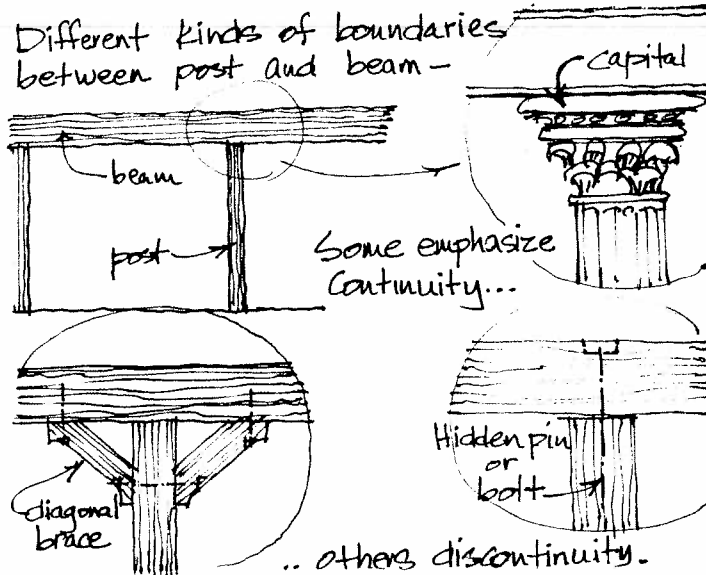 Different kinds of boundaries
between post and beam –
capital
beam
post
Some emphasize
Continuity...
diagonal
brace
Hidden pin
or
bolt
.. others discontinuity.